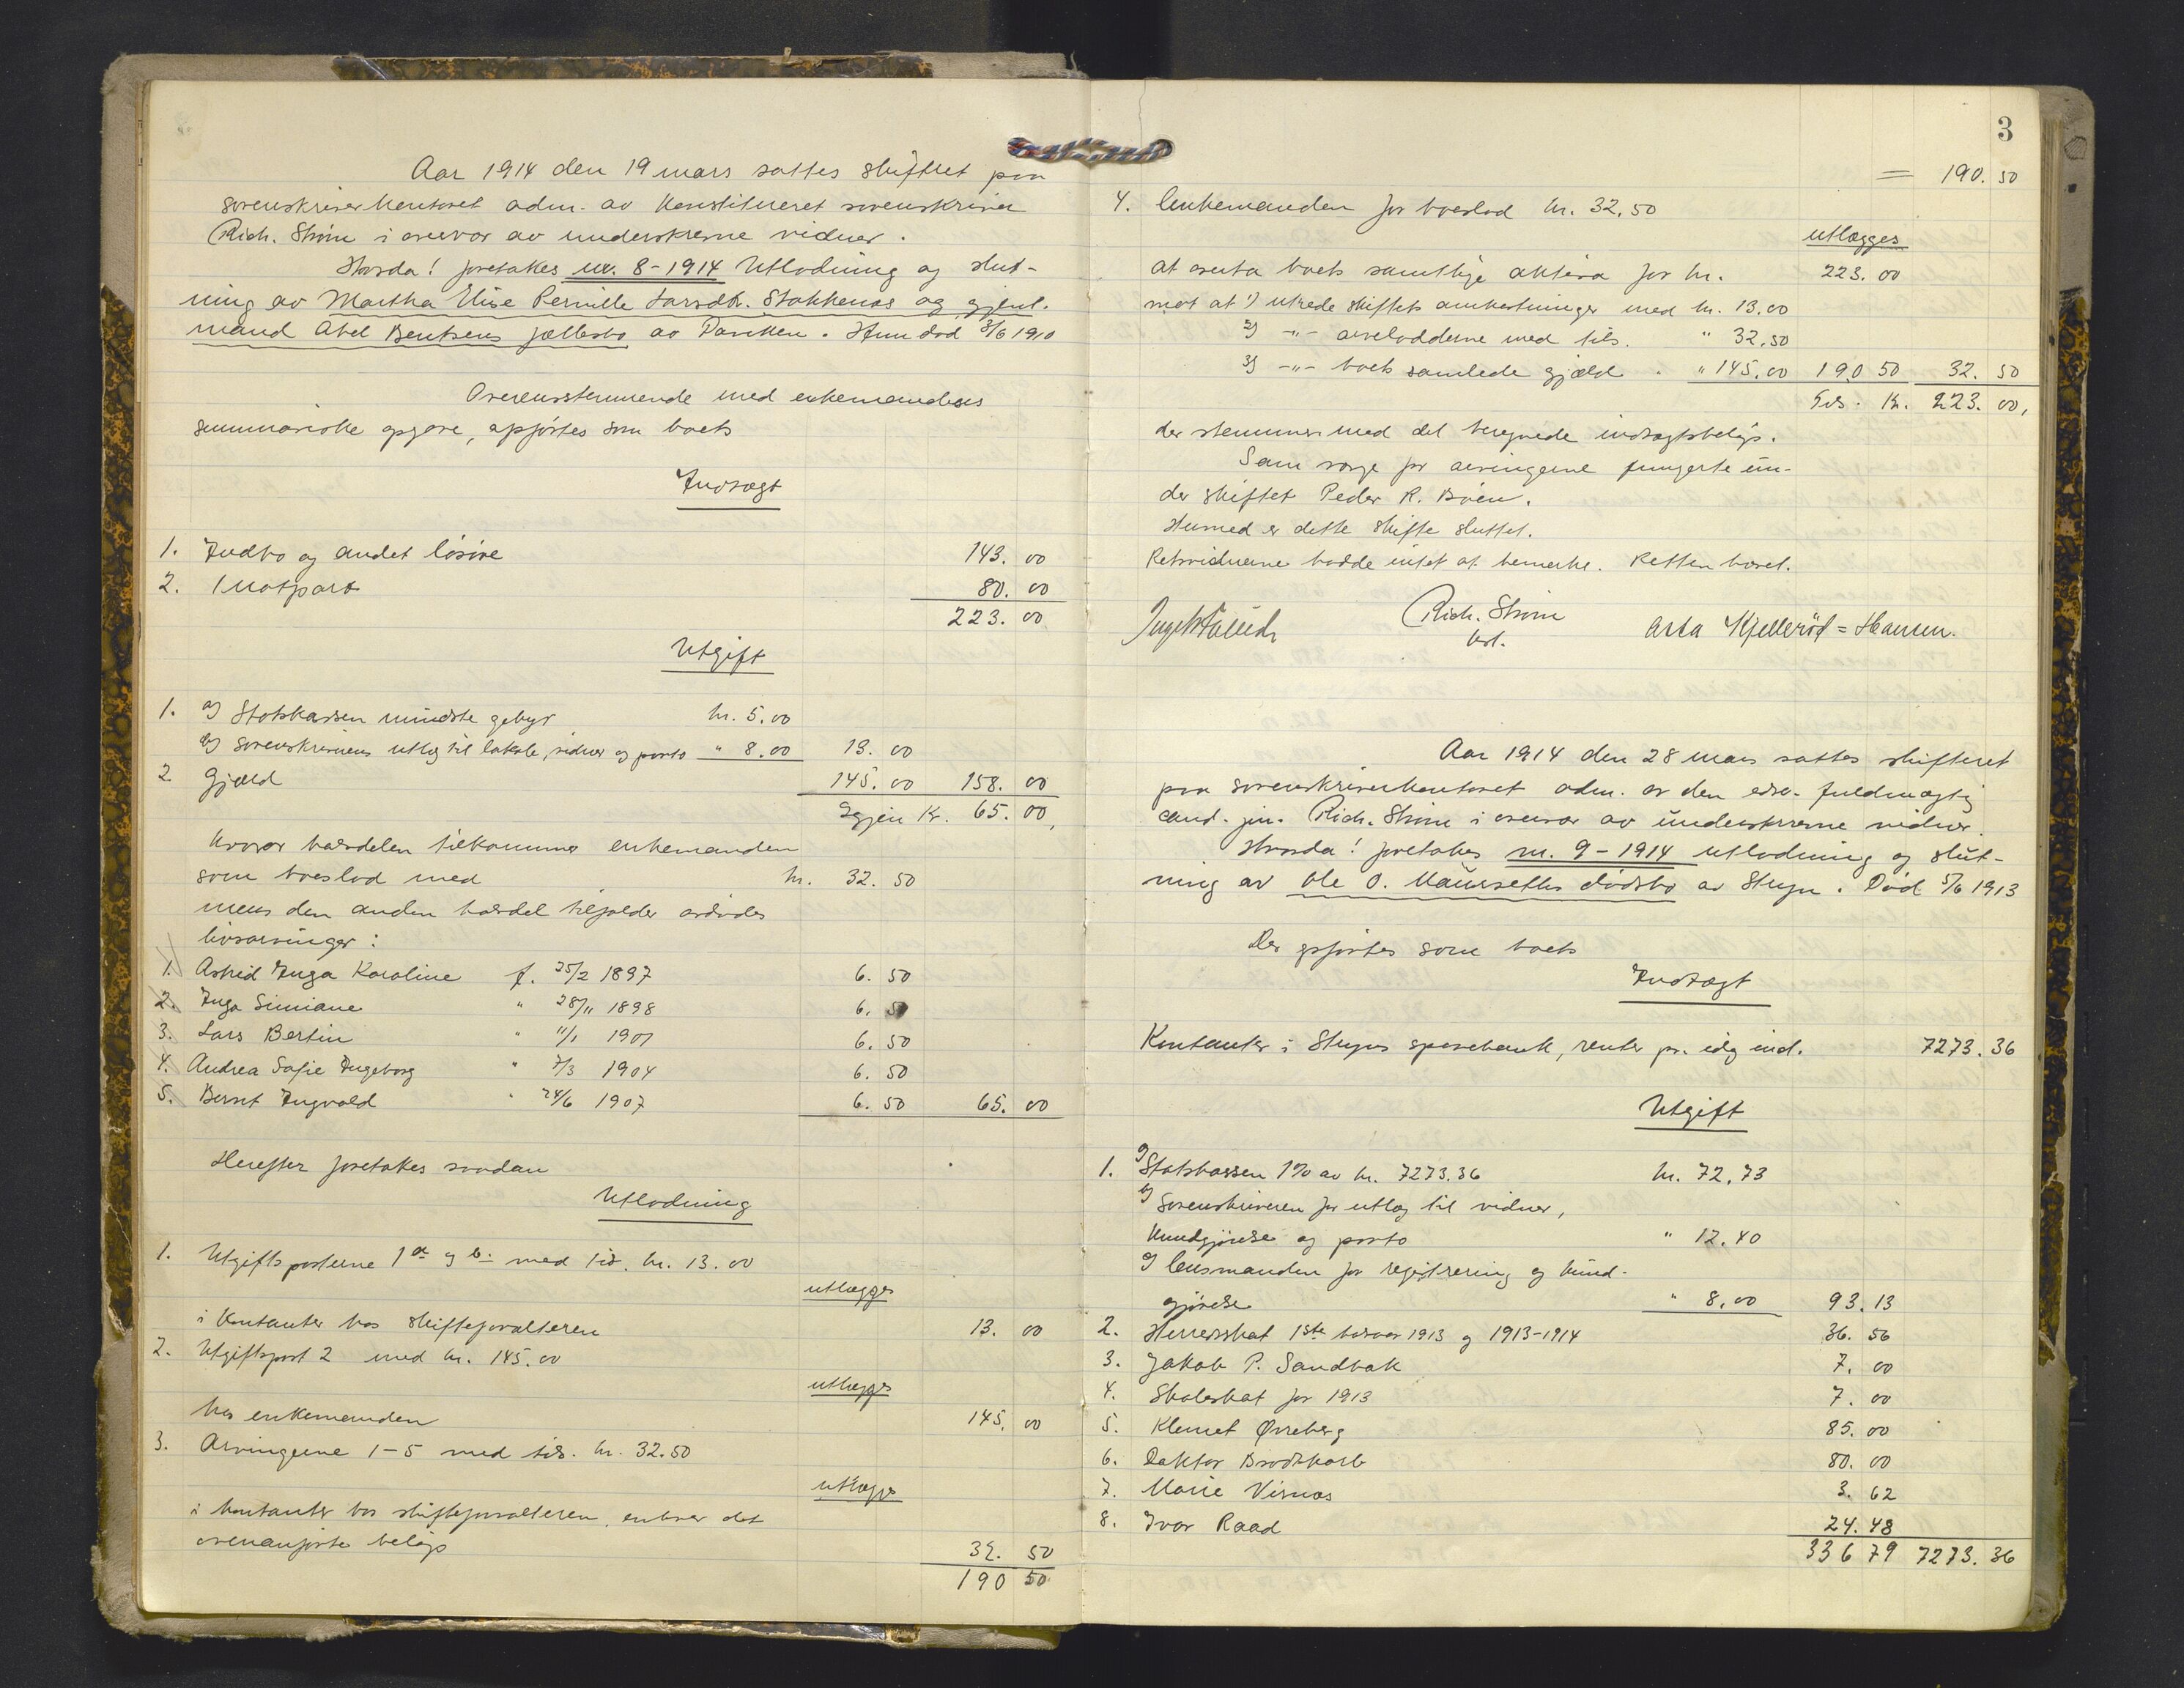 Aar 1914 den 19 mars sattes skifteret paa
sorenskriverkontoret adm. av konstitueret sorenskriver
Rich. Strøm i overvær av underskrevne vidner.
Hvorda! foretokes nr. 8-1914 Utlodning og slut-
ning av Martha Elise Pernille Larsdtr. Stokkenes og gjenl.
mand Abel Bentsens fællesbo av Davиken. Hun død 3/6 1910
Overensstemmende med enkemandens
summariske opgave, opførtes som boets
Indtægt
1. Indbo og andet løsøre 143. 00
2. 1 notpart 80. 00
223. 00
Utgift
1. a) Statskassen mindste gebyr kr. 5.00
b) Sorenskriverens utlæg til lokale, vidner og porto " 8.00 13. 00
2 Gjæld 145. 00 158. 00
Igjen Kr. 65. 00,
hvorav halvdelen tilkommer enkemanden
som boeslod med kr. 32. 50
mens den anden halvdel tilfalder avdødes
livsarvinger:
1. Astrid Inga Karoline f. 25/2 1897 6. 50
2. Inga Simiane " 28/11 1898 6. 50
3. Lars Bertin " 11/1 1901 6. 50
4. Andrea Sofie Ingeborg " 7/3 1904 6. 50
5. Bernt Ingvald " 24/6 1907 6. 50 65. 00
Herefter foretokes saadan
Utlodning
1. Utgiftsposterne 1 a og b. med tils. kr. 13.00
utlægges
i kontanter hos skifteforvalteren 13. 00
2. Utgiftspost 2 med kr. 145.00
utlægges
hos enkemanden 145. 00
3. Arvingerne 1-5 med tils. kr. 32.50
utlægges
i kontanter hos skifteforvalteren, enhver det
ovenanførte beløp 32. 50
190 50
3
= 190. 50
4. Enkemanden for boeslod kr. 32.50
utlægges
at overta boets samtlige aktiva for kr. 223. 00
mot at 1) utrede skiftets omkostninger med kr. 13.00
2) -"- arvelodderne med tils. " 32.50
3) -"- boets samlede gjæld " " 145.00 190 50 32. 50
Tils. Kr. 223. 00,
der stemmer med det beregnede indtægtsbeløp.
Som verge for arvingerne fungerte un-
der skiftet Peder R. Bøen.
Hermed er dette skifte sluttet.
Retsvidnerne hadde intet at bemerke. Retten hævet.
Rich. Strøm
kst.
Asta Kjellerød=Hansen.
Aar 1914 den 28 mars sattes skifteret
paa sorenskriverkontoret adm. av den edsv. fuldmægtig
cand. jur. Rich. Strøm i overvær av underskrevne vidner.
Hvorda! foretokes nr. 9-1914 utlodning og slut-
ning av Ole O. Maursettes dødsbo av Stryn. Død 5/6 1913
Der opførtes som boets
Indtægt
Kontanter i Stryns sparebank, renter pr. idag ind. 7273. 36
Utgift
1. a) Statskassen 1% av kr. 7273.36 kr. 72.73
b) Sorenskriveren for utlæg til vidner,
kundgjørelse og porto " 12.40
c) Lensmanden for registrering og kund-
gjørelse " 8.00 93. 13
2. Herredsskat 1ste halvaar 1913 og 1913-1914 36. 56
3. Jakob P. Sandbak 7. 00
4. Skoleskat for 1913 7. 00
5. Klemet Ørreberg 85. 00
6. Doktor Brodtkorb 80. 00
7. Marie Visnæs 3. 62
8. Ivar Raad 24. 48
336 79 7273. 36